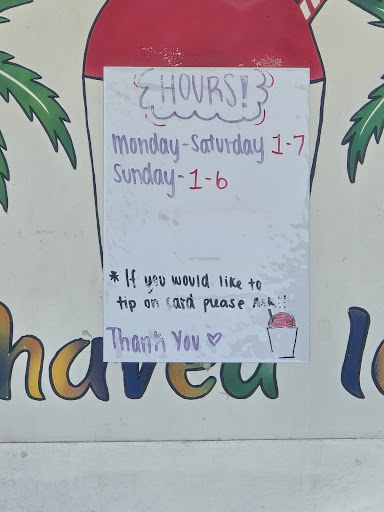 HOURS!
Monday-Saturday 1-7
Sunday- 1-6
* If you would like to
tip on card please Ask!!
Thank You ♡
haved Ic